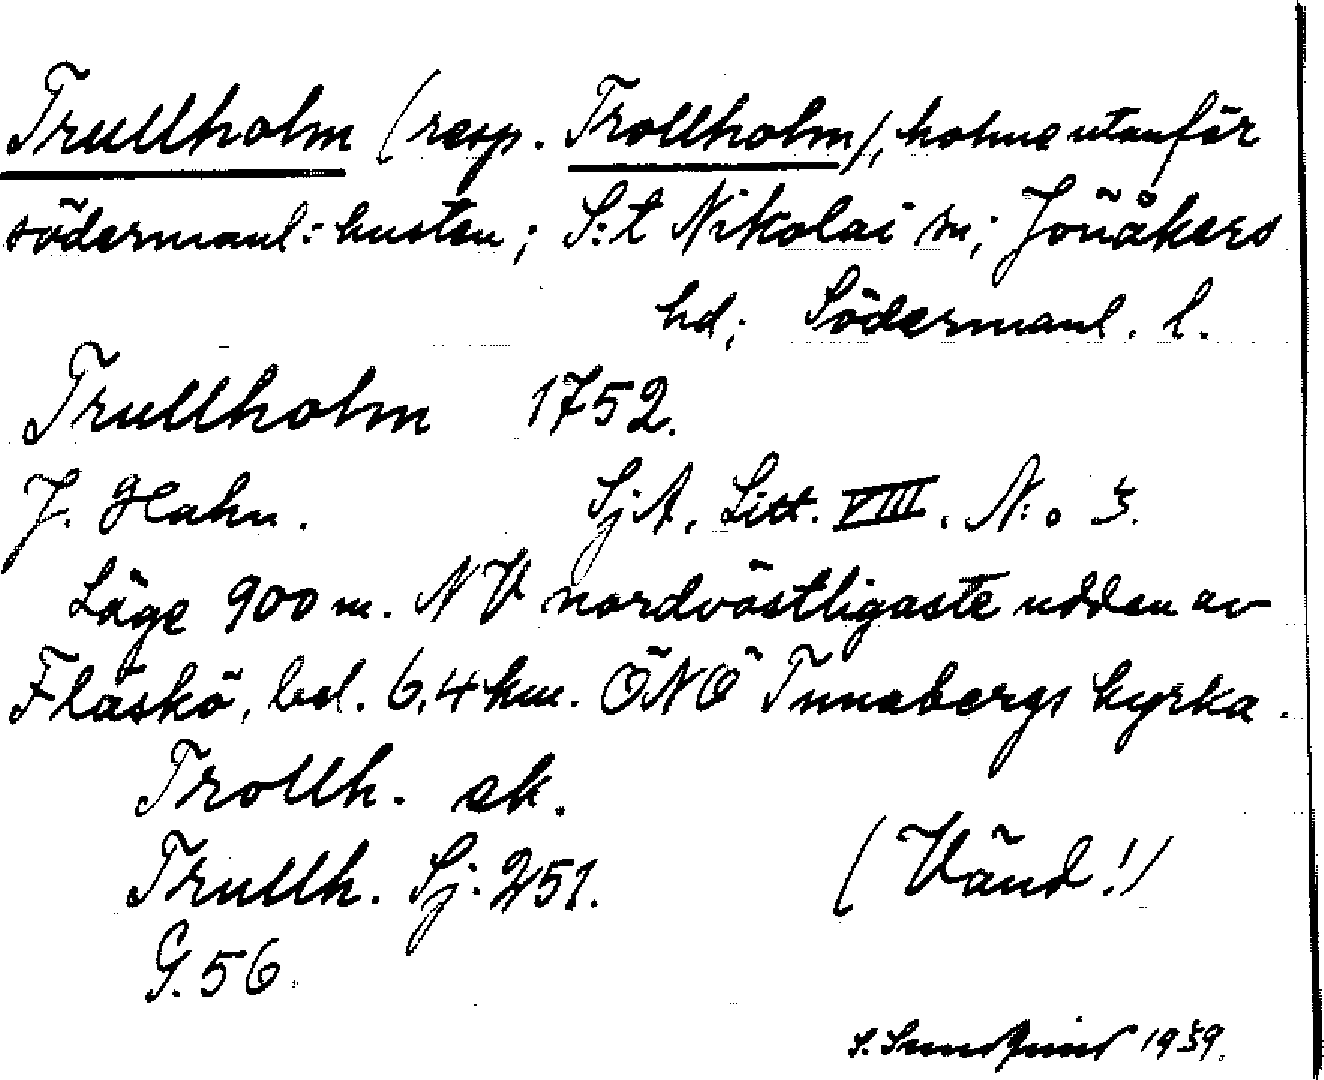 Trullholm (resp. Trollholm), holme utanför
södermanl: kusten; S:t Nikolai sn; Jönåkers
hd; Södermanl. l.
Trullholm 1752.
J. Hahn. SjA. Litt. VIII. N:o 3.
Läge 900 m. NV nordvästligaste udden av
Fläskö, bel. 6,4 km. ÖNÖ Tunabergs kyrka.
Trollh. ek.
Trullh. Sj: 251.
G. 56.
(Vänd!)
S. Sundqvist 1939.